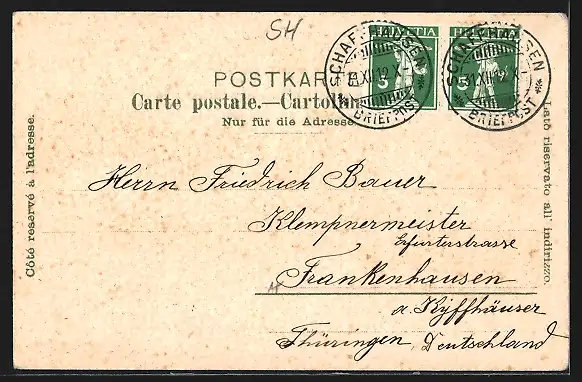 SH
HELVETIA HELVETIA
5 5
SCHAFFHAUSEN
31.XII.12.X-
BRIEFPOST
SCHAFFHAUSEN
31.XII.12.X-
BRIEFPOST
POSTKARTE
Carte postale.—Cartolina
Nur für die Adresse
Côté reservé à l'adresse.
Lato riservato all' indirizzo.
Herrn Friedrich Bauer
Klempnermeister
Erfurterstrasse
Frankenhausen
a. Kyffhäuser
Thüringen, Deutschland